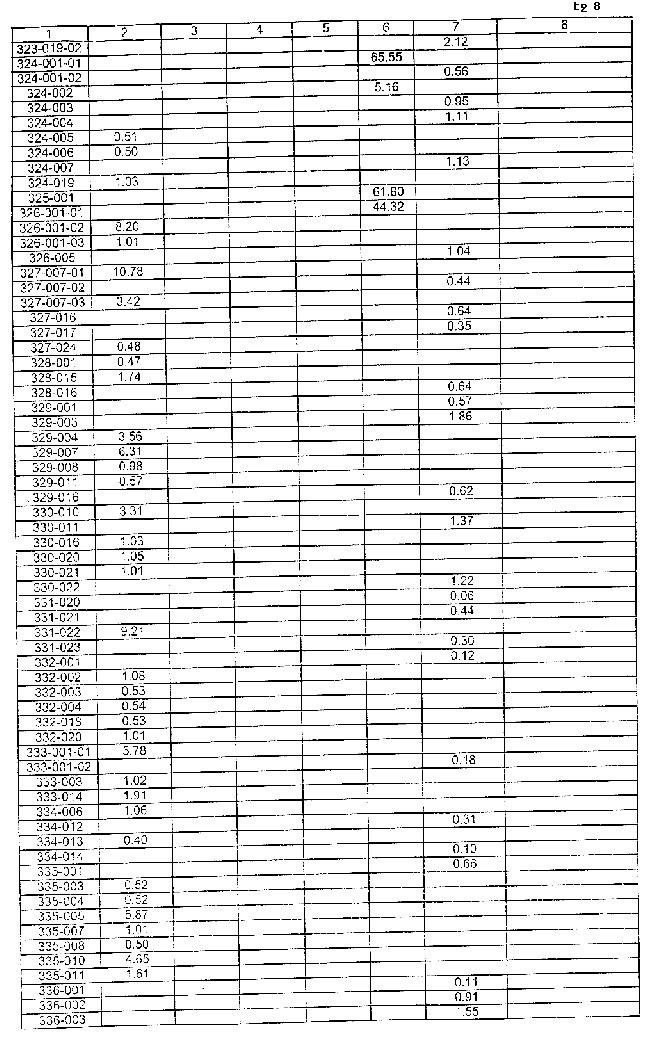 8
1 2 3 4 5 6 7 8
323-019-02 2.12
324-001-01 65.55
324-001-02 0.56
324-002 5.16
324-003 0.95
324-004 1.11
324-005 0.51
324-006 0.50
324-007 1.13
324-019 1.03
325-001 61.60
326-001-01 44.32
326-001-02 8.20
326-001-03 1.01
326-005 1.04
327-007-01 10.78
327-007-02 0.44
327-007-03 3.42
327-016 0.64
327-017 0.35
327-024 0.48
328-001 0.47
328-015 1.74
328-016 0.64
329-001 0.57
329-003 1.86
329-004 3.56
329-007 6.31
329-008 0.98
329-011 0.57
329-016 0.62
330-010 3.31
330-011 1.37
330-016 1.03
330-020 1.05
330-021 1.01
330-022 1.22
331-020 0.06
331-021 0.44
331-022 9.21
331-023 0.30
332-001 0.12
332-002 1.08
332-003 0.53
332-004 0.54
332-019 0.53
332-020 1.01
333-001-01 5.78
333-001-02 0.18
333-003 1.02
333-014 1.91
334-006 1.06
334-012 0.31
334-013 0.40
334-014 0.10
335-001 0.66
335-003 0.52
335-004 0.52
335-005 5.87
335-007 1.01
335-008 0.50
335-010 4.65
335-011 1.61
336-001 0.11
336-002 0.91
336-003 1.55